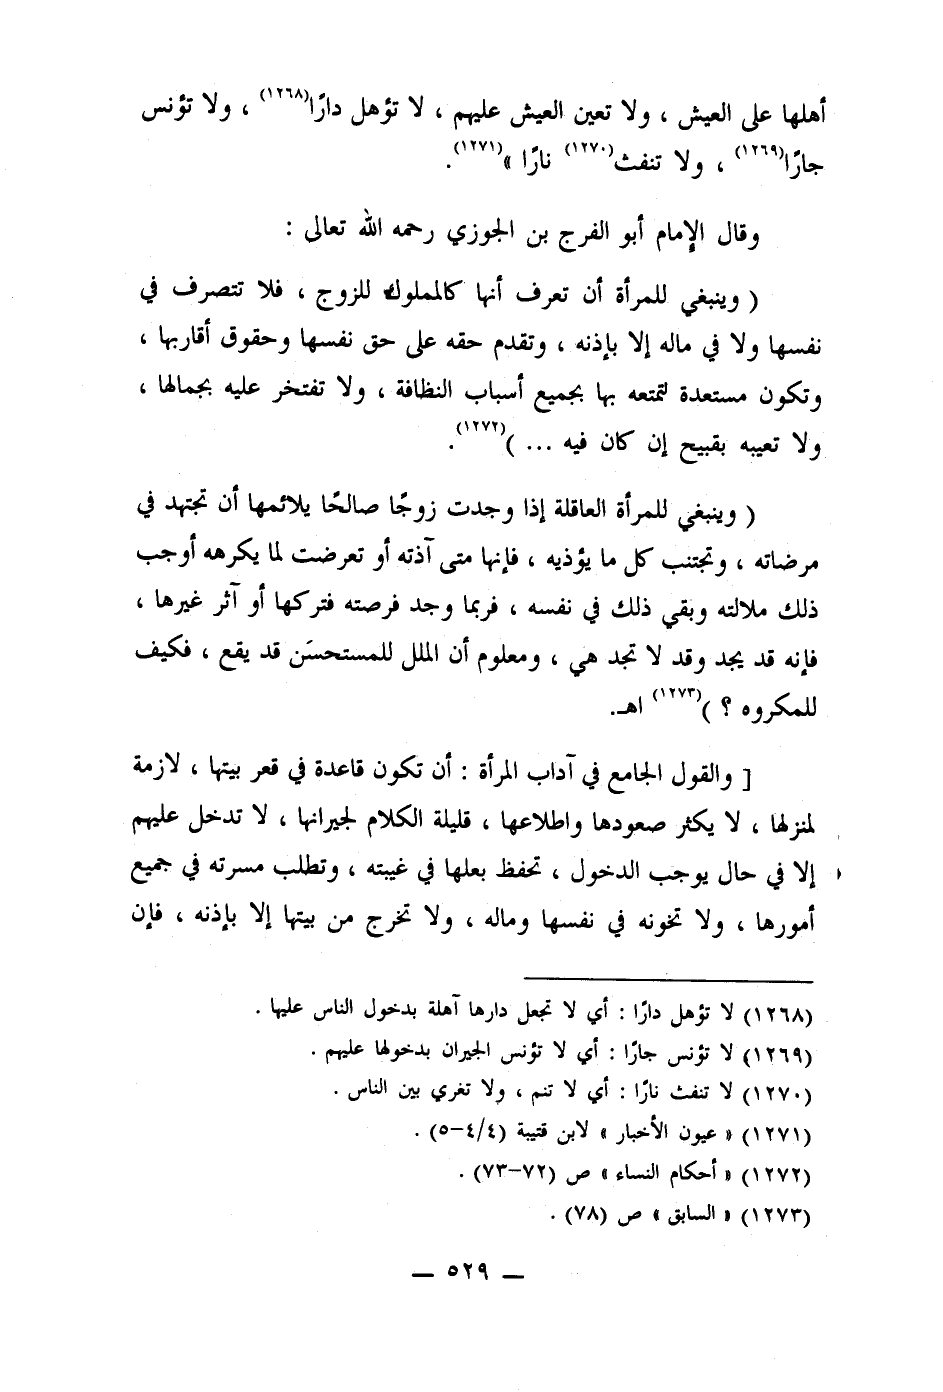 أهلها على العيش ، ولا تعين العيش عليهم ، لا تؤهل دارًا(١٢٦٨) ، ولا تؤنس
جارًا(١٢٦٩) ، ولا تنفث(١٢٧٠) نارًا »(١٢٧١).
وقال الإمام أبو الفرج بن الجوزي رحمه الله تعالى :
( وينبغي للمرأة أن تعرف أنها كالمملوك للزوج ، فلا تتصرف في
نفسها ولا في ماله إلا بإذنه ، وتقدم حقه على حق نفسها وحقوق أقاربها ،
وتكون مستعدة لتمتعه بها بجميع أسباب النظافة ، ولا تفتخر عليه بجمالها ،
ولا تعيبه بقبيح إن كان فيه ... )(١٢٧٢).
( وينبغي للمرأة العاقلة إذا وجدت زوجًا صالحًا يلائمها أن تجتهد في
مرضاته ، وتجتنب كل ما يؤذيه ، فإنها متى آذته أو تعرضت لما يكرهه أوجب
ذلك ملالته وبقي ذلك في نفسه ، فربما وجد فرصته فتركها أو آثر غيرها ،
فإنه قد يجد وقد لا تجد هي ، ومعلوم أن الملل للمستحسَن قد يقع ، فكيف
للمكروه ؟ )(١٢٧٣) اهـ.
[ والقول الجامع في آداب المرأة : أن تكون قاعدة في قعر بيتها ، لازمة
لمنزلها ، لا يكثر صعودها واطلاعها ، قليلة الكلام لجيرانها ، لا تدخل عليهم
إلا في حال يوجب الدخول ، تحفظ بعلها في غيبته ، وتطلب مسرته في جميع
أمورها ، ولا تخونه في نفسها وماله ، ولا تخرج من بيتها إلا بإذنه ، فإن
(١٢٦٨) لا تؤهل دارًا : أي لا تجعل دارها آهلة بدخول الناس عليها .
(١٢٦٩) لا تؤنس جارًا : أي لا تؤنس الجيران بدخولها عليهم .
(١٢٧٠) لا تنفث نارًا : أي لا تنم ، ولا تغري بين الناس .
(١٢٧١) « عيون الأخبار » لابن قتيبة (٤/٤-٥) .
(١٢٧٢) « أحكام النساء » ص (٧٢-٧٣) .
(١٢٧٣) « السابق » ص (٧٨) .
ـ ٥٢٩ ـ